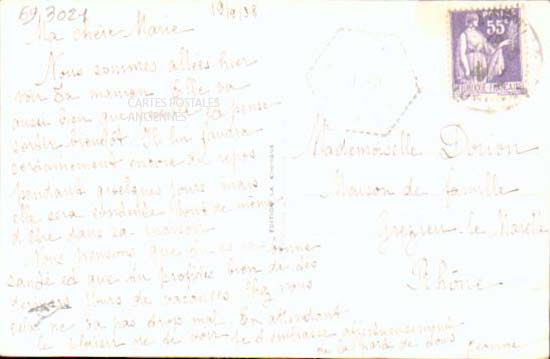 69,3021
19/9/38
Ma chère Marie
Nous sommes allées hier
voir ta maman. Elle va
aussi bien que possible et pense
sortir bientôt. Il lui faudra
certainement encore du repos
pendant quelques jours mais
elle sera contente tout de même
d'être dans sa maison.
Nous pensons que tu es en bonne
santé et que tu profites bien de tes
derniers jours de vacances. Chez nous
cela ne va pas trop mal. En attendant
le plaisir de te voir je t'embrasse affectueusement
de la part de tous
Jeanne
CARTES POSTALES
ANCIENNES
EDITION LA
55c
Mademoiselle
Maison de famille
Grézieu-le-Marché
Rhône